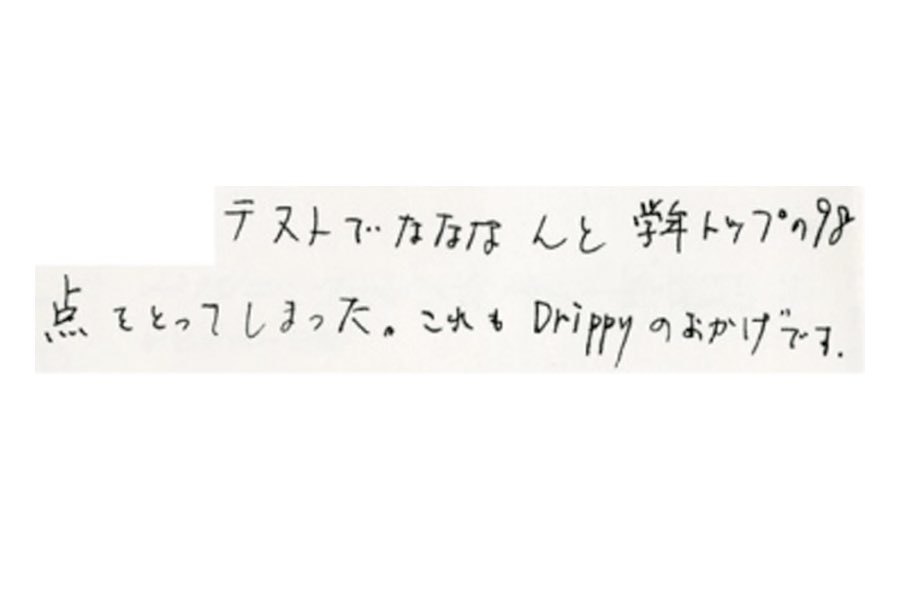 テストでなななんと学年トップの98
点をとってしまった。これもDrippyのおかげです.